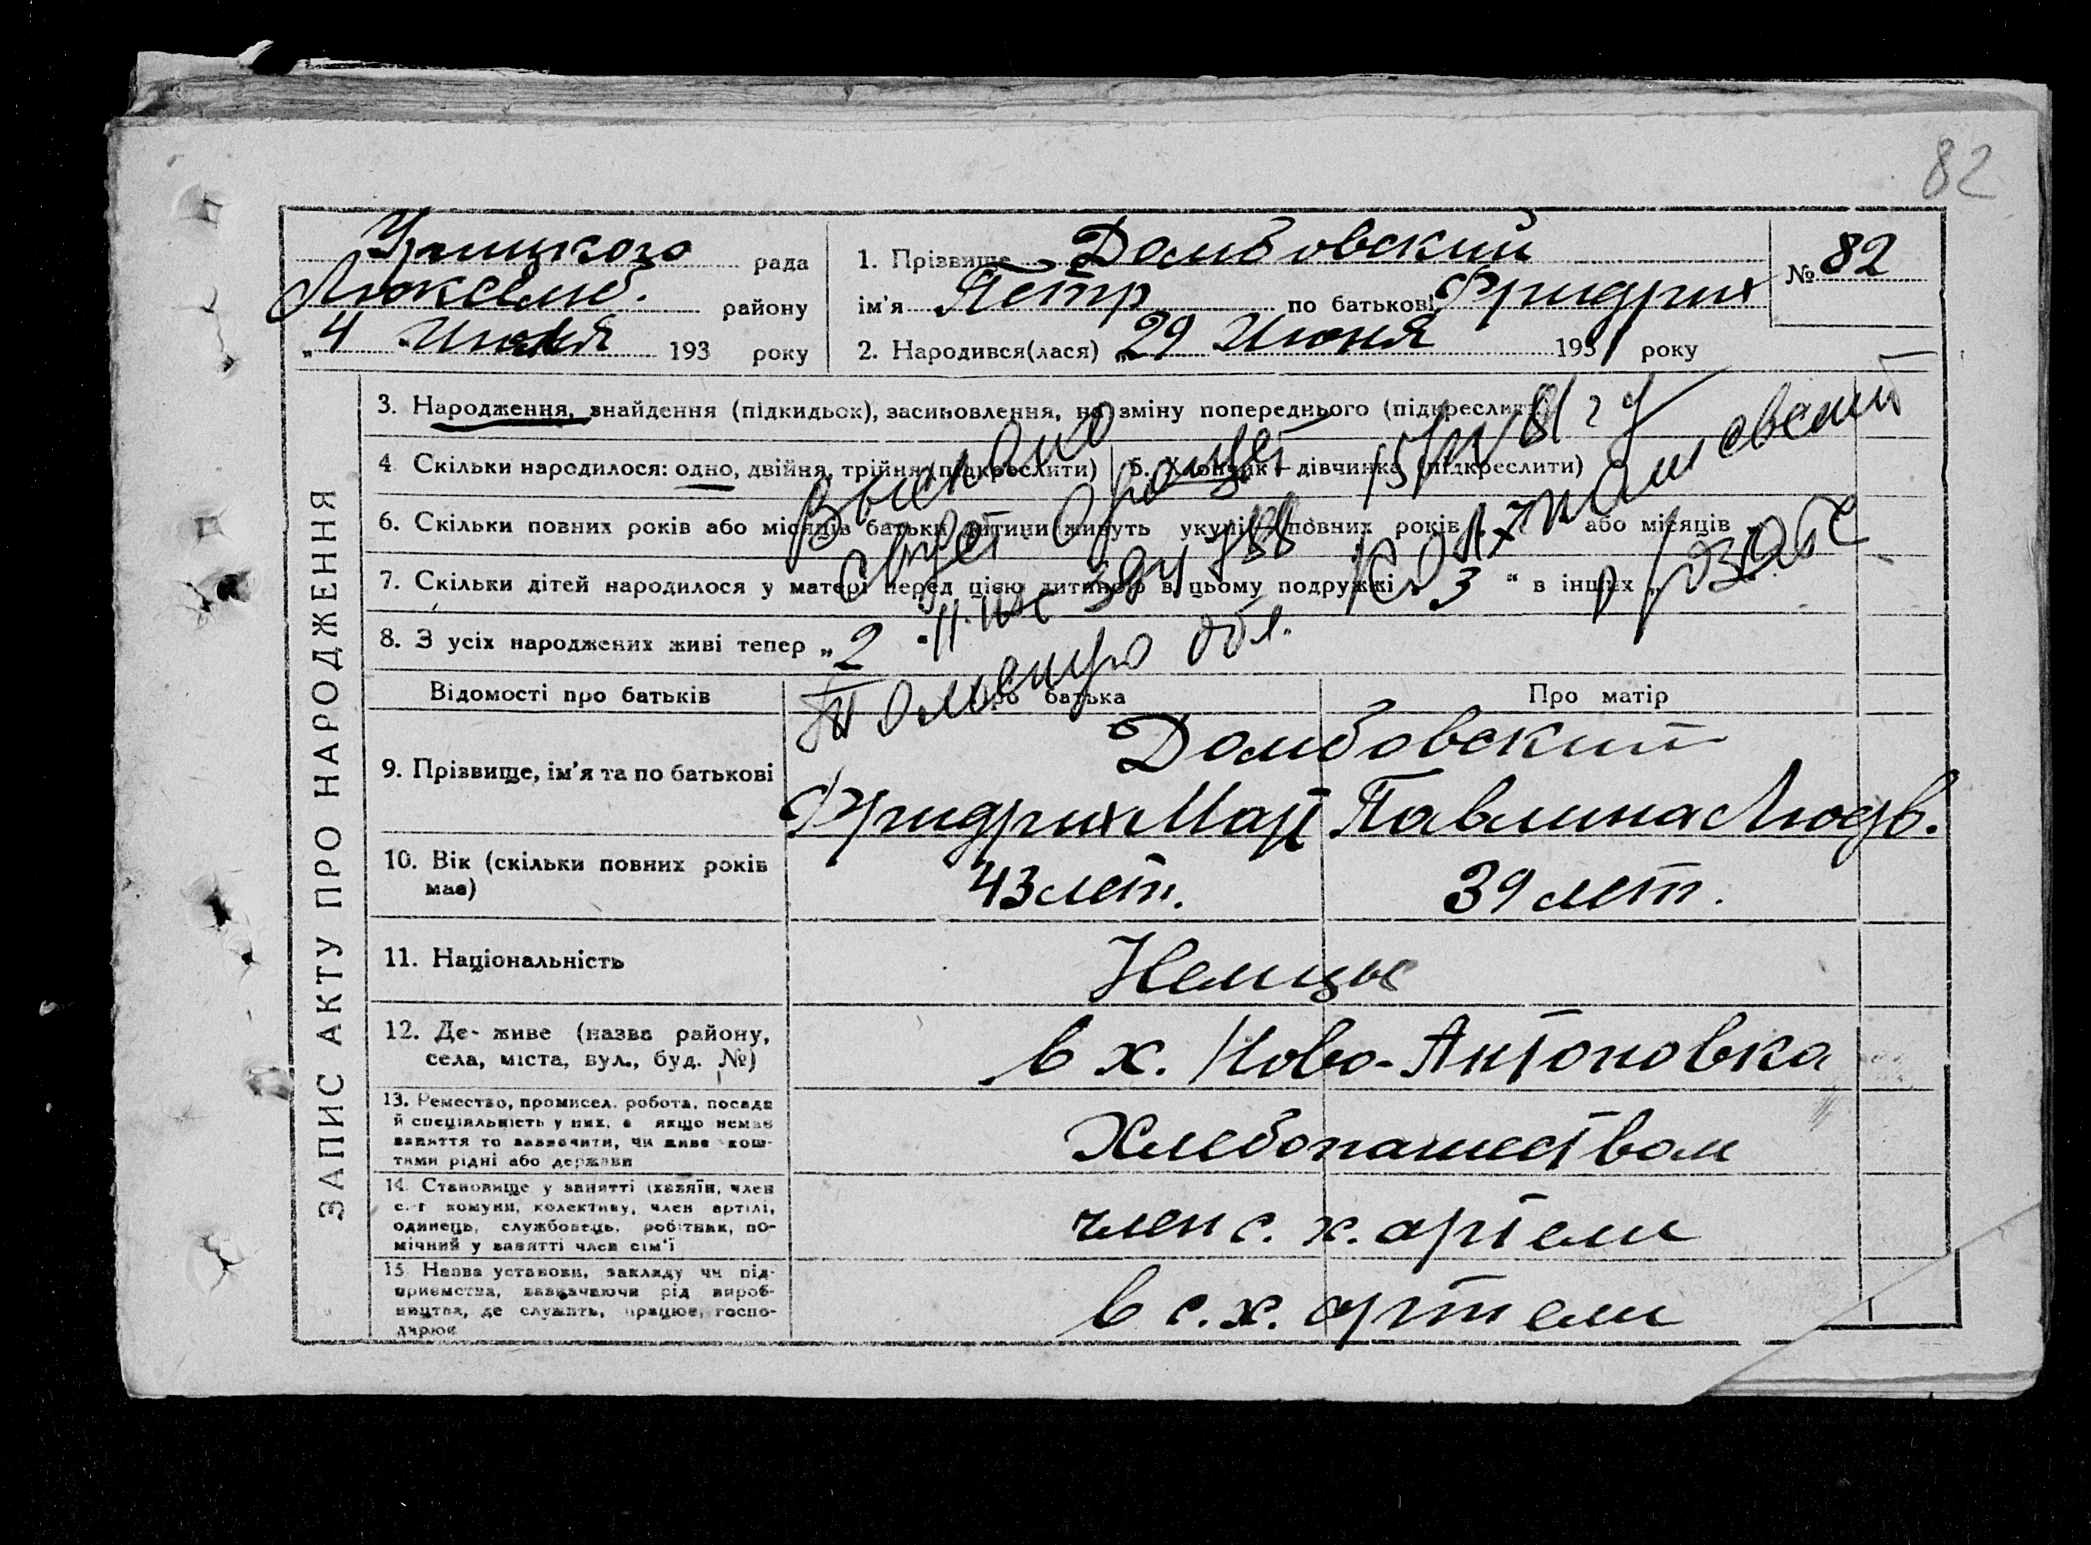 82
Урицкого рада
Люксемб. району
„4 Июля 193 року
1. Прізвище Домбовский
ім'я Петр по батькові Фридрих
2. Народився(лася) „29 Июня 1931 року
№ 82
ЗАПИС АКТУ ПРО НАРОДЖЕННЯ
3. Народження, знайдення (підкидьок), засиновлення, на зміну попереднього (підкреслити)
4. Скільки народилося: одно, двійня, трійня (підкреслити)
5. Хлопчик – дівчинка (підкреслити)
6. Скільки повних років або місяців батьки дитини живуть укупі повних років або місяців
7. Скільки дітей народилося у матері перед цією дитиною в цьому подружжі „3“ в інших „
8. З усіх народжених живі тепер „2
Выслано
15/IV 81 г
обл.
Відомості про батьків
Про батька
Про матір
9. Прізвище, ім'я та по батькові
Домбовский
Фридрих Март Павлина Людв.
10. Вік (скільки повних років має)
43 лет. 39 лет.
11. Національність
Немцы
12. Де живе (назва району,
села, міста, вул., буд. №)
в х. Ново-Антоновка
13. Ремество, промисел, робота, посада
й спеціяльність у них, а якщо немає
заняття то зазначити, чи живе кош-
тами рідні або держави
Хлебопашеством
14. Становище у занятті (хазяїн, член
с.-г комуни, колективу, член артілі,
одинець, службовець, робітник, по-
мічний у занятті член сім'ї
член с. х. артели
15. Назва установи, закладу чи під-
приємства, зазначаючи рід вироб-
ництва, де служить, працює, госпо-
дарює
в с. х. артели